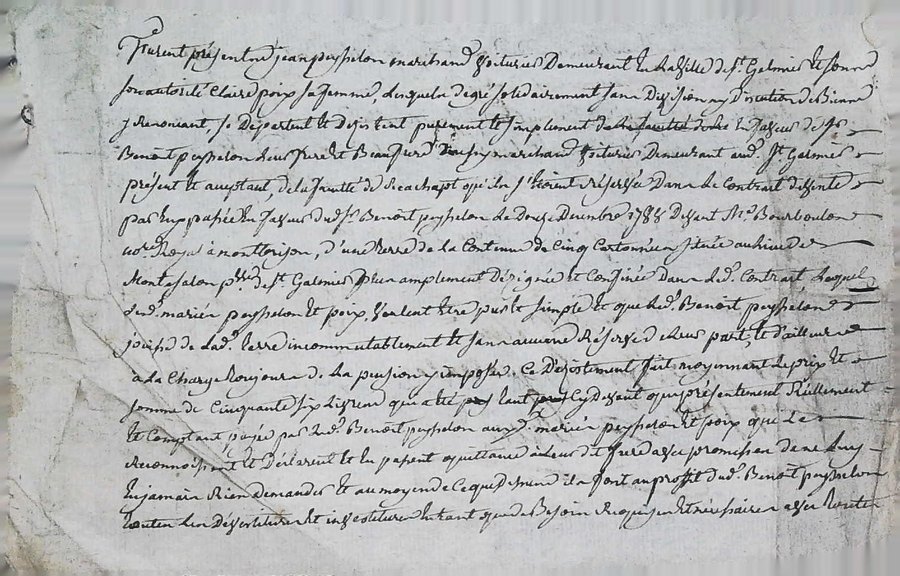 Furent présents jean peysselon marchand voiturier Demeurant En la ville de St. Galmier Et sous
son autorité Claire poix sa femme, Lesquels de gré solidairement sans Division ny Discution de Biens
y Renonçant, se Départent Et Désistent purement Et simplement En faveur de Sr.
Benoit peysselon Leur frere Et Beaufrere aussy marchand voiturier Demeurant aud. St. Galmier
présent Et acceptant, de la faculté de Reachapt qu'ils s'Etoient Réservée Dans Le Contrat de vente
par Eux passée En faveur dud. Sr. Benoit peysselon Le Douze Decembre 1788 Devant Me. Bourboulon
no.re Royal à montbrison, d'une Terre de la Contenue de Cinq Cartonnées située au lieu de
Montsalon p.sse de St. Galmier plus amplement Désignée Et Confinée Dans Led. Contrat, Lequel
Lesd. mariés peysselon Et poix, veulent Etre pur Et simple Et que Led. Benoit peysselon
jouisse de Lad. Terre incommutablement Et sans aucune Réserve de Leur part, Et d'ailleurs
à La Charge Toujours de La pension y imposée. Ce Désistement fait moyennant Le prix Et
somme de Cinquante six Livres qui a été tant Cy devant que présentement Réellement
Et Comptant payée par Led. Benoit peysselon auxd. mariés peysselon Et poix qui Le
Reconnoissent Et Déclarent Et En passent quittance à Leur dit frere avec promesse de ne Luy
En jamais Rien Demander Et au moyen de Ce que dessus ils font au profit dud. Benoit peysselon
toutes Les Dévestitures Et investitures En tant que de Besoin Requises Et nécessaires avec toutes